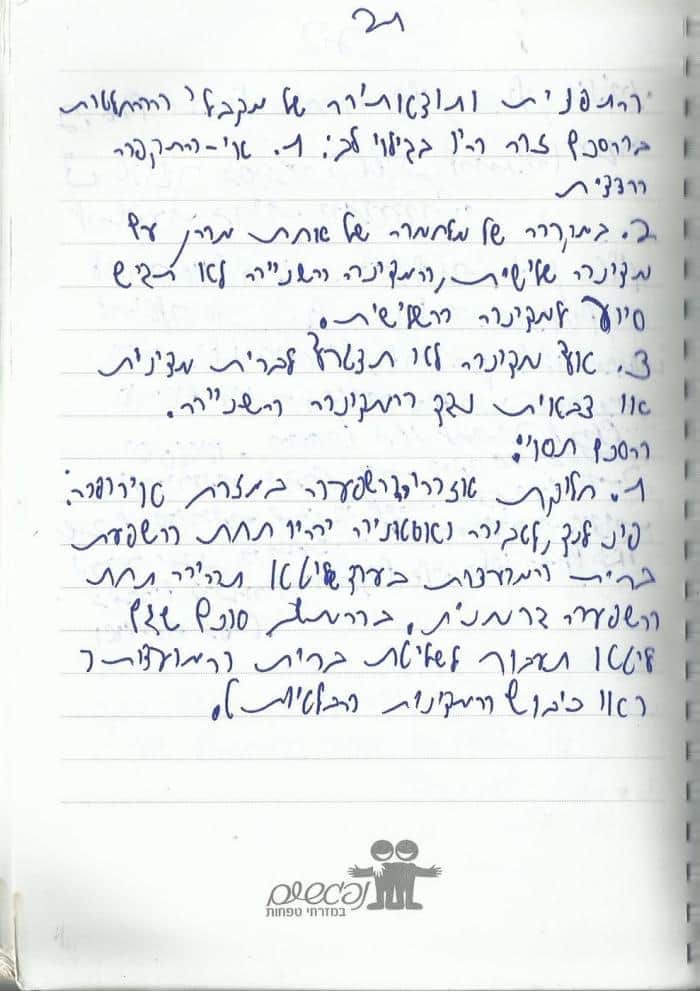 21
התפנית ותוצאותיה של מקבלי ההחלטות
בהסכם זה היו בגילוי לב: 1. אי-התקפה
הדדית
2. במקרה של מלחמה של אחת מהן עם
מדינה שלישית, המדינה השנייה לא תגיש
סיוע למדינה השלישית.
3. אף מדינה לא תצטרף לברית מדינית
או צבאית נגד המדינה השנייה.
הסכם חסוי:
1. חלוקת אזורי השפעה במזרח אירופה:
פינלנד, לטביה ואסטוניה יהיו תחת השפעת
ברית המועצות בעוד ליטא תהיה תחת
השפעה גרמנית. בהמשך סוכם שגם
ליטא תעבור לשליטת ברית המועצות (
ראו כיבוש המדינות הבלטיות).
נפגשים
במזרחי טפחות